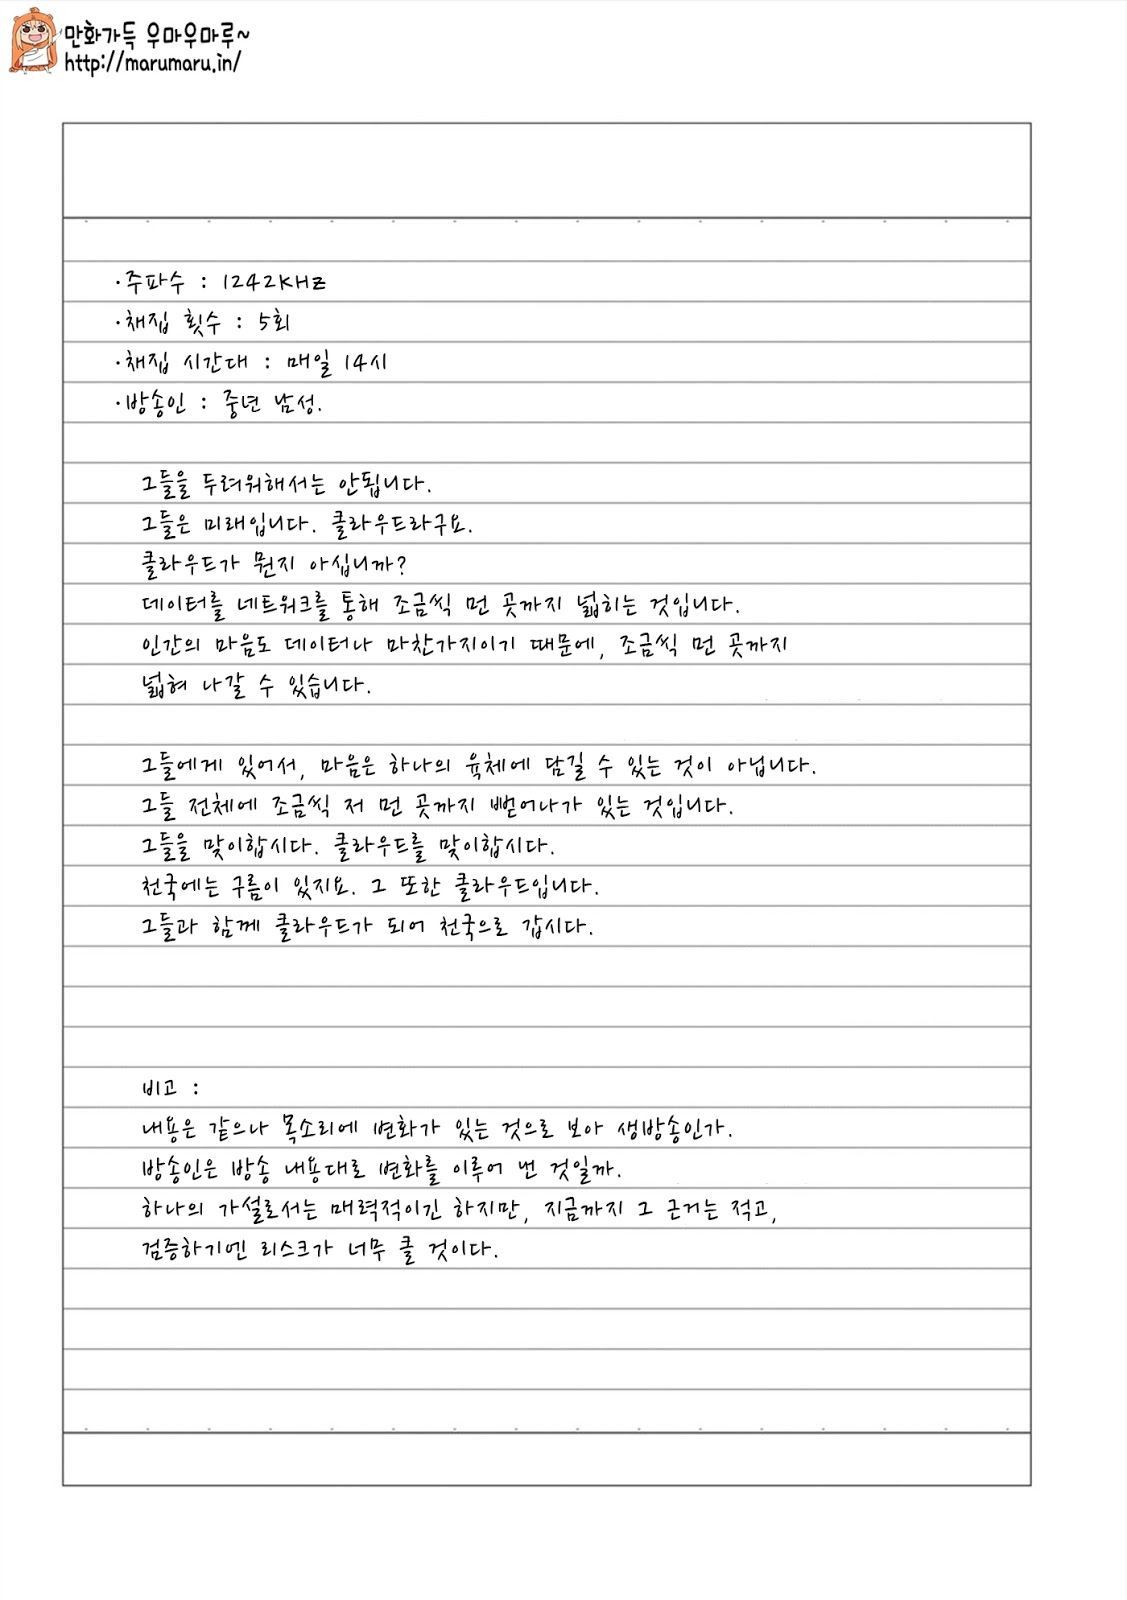 만화가득 우마우마루~
http://marumaru.in/
·주파수 : 1242KHz
·채집 횟수 : 5회
·채집 시간대 : 매일 14시
·방송인 : 중년 남성.
그들을 두려워해서는 안됩니다.
그들은 미래입니다. 클라우드라구요.
클라우드가 뭔지 아십니까?
데이터를 네트워크를 통해 조금씩 먼 곳까지 넓히는 것입니다.
인간의 마음도 데이터나 마찬가지이기 때문에, 조금씩 먼 곳까지
넓혀 나갈 수 있습니다.
그들에게 있어서, 마음은 하나의 육체에 담길 수 있는 것이 아닙니다.
그들 전체에 조금씩 저 먼 곳까지 뻗어나가 있는 것입니다.
그들을 맞이합시다. 클라우드를 맞이합시다.
천국에는 구름이 있지요. 그 또한 클라우드입니다.
그들과 함께 클라우드가 되어 천국으로 갑시다.
비고 :
내용은 같으나 목소리에 변화가 있는 것으로 보아 생방송인가.
방송인은 방송 내용대로 변화를 이루어 낸 것일까.
하나의 가설로서는 매력적이긴 하지만, 지금까지 그 근거는 적고,
검증하기엔 리스크가 너무 클 것이다.